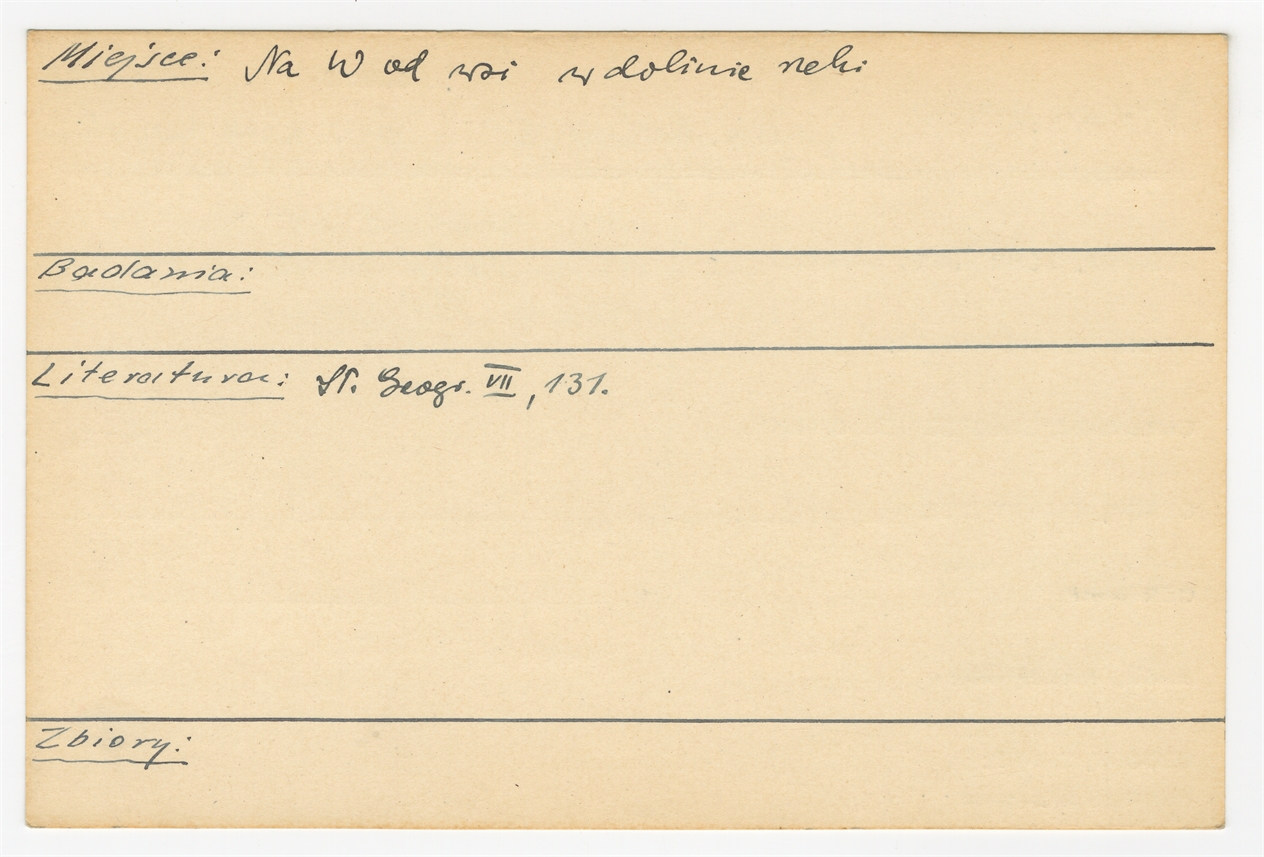 Miejsce: Na W od wsi w dolinie rzeki
Badania:
Literatura: Sł. Geogr. VII, 131.
Zbiory: